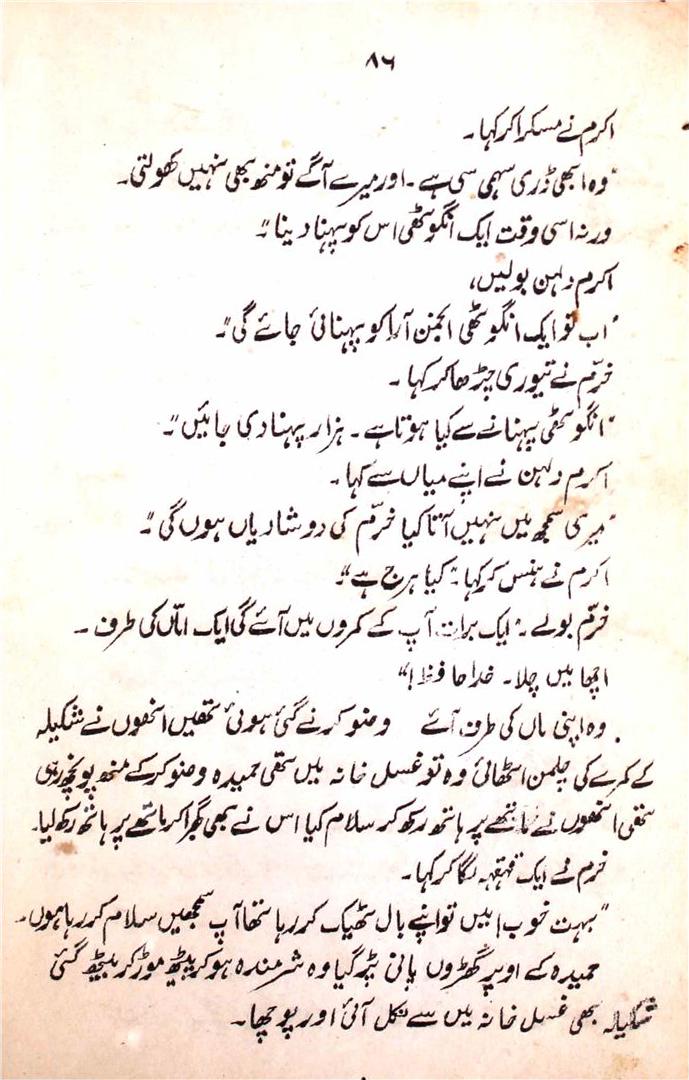 ۸۶
اکرم نے مسکرا کر کہا۔
"وہ ابھی ڈری سہمی سی ہے۔ اور میرے آگے تو منھ بھی نہیں کھولتی۔
ورنہ اسی وقت ایک انگوٹھی اس کو پہنا دینا"۔
اکرم دلہن بولیں،
"اب تو ایک انگوٹھی انجمن آرا کو پہنائی جائے گی"۔
خرّم نے تیوری چڑھا کر کہا۔
"انگوٹھی پہنانے سے کیا ہوتا ہے۔ ہزار پہنا دی جائیں"۔
اکرم دلہن نے اپنے میاں سے کہا۔
"میری سمجھ میں نہیں آتا کیا خرّم کی دو شادیاں ہوں گی"۔
اکرم نے ہنس کر کہا "کیا ہرج ہے"۔
خرّم بولے۔ "ایک برات آپ کے کمروں میں آئے گی ایک امّاں کی طرف۔
اچھا میں چلا۔ خدا حافظ!"
وہ اپنی ماں کی طرف آئے وضو کرنے گئی ہوئی تھیں انھوں نے شکیلہ
کے کمرے کی چلمن اٹھائی وہ تو غسل خانہ میں تھی حمیدہ وضو کر کے منھ پونچھ رہی
تھی انھوں نے ماتھے پر ہاتھ رکھ کر سلام کیا اس نے بھی گھبرا کر ماتھے پر ہاتھ رکھ لیا۔
خرم نے ایک قہقہہ لگا کر کہا۔
"بہت خوب! میں تو اپنے بال ٹھیک کر رہا تھا آپ سمجھیں سلام کر رہا ہوں۔
حمیدہ کے اوپر گھڑوں پانی پڑ گیا وہ شرمندہ ہو کر پیٹھ موڑ کر بیٹھ گئی
شکیلہ بھی غسل خانہ میں سے نکل آئی اور پوچھا۔